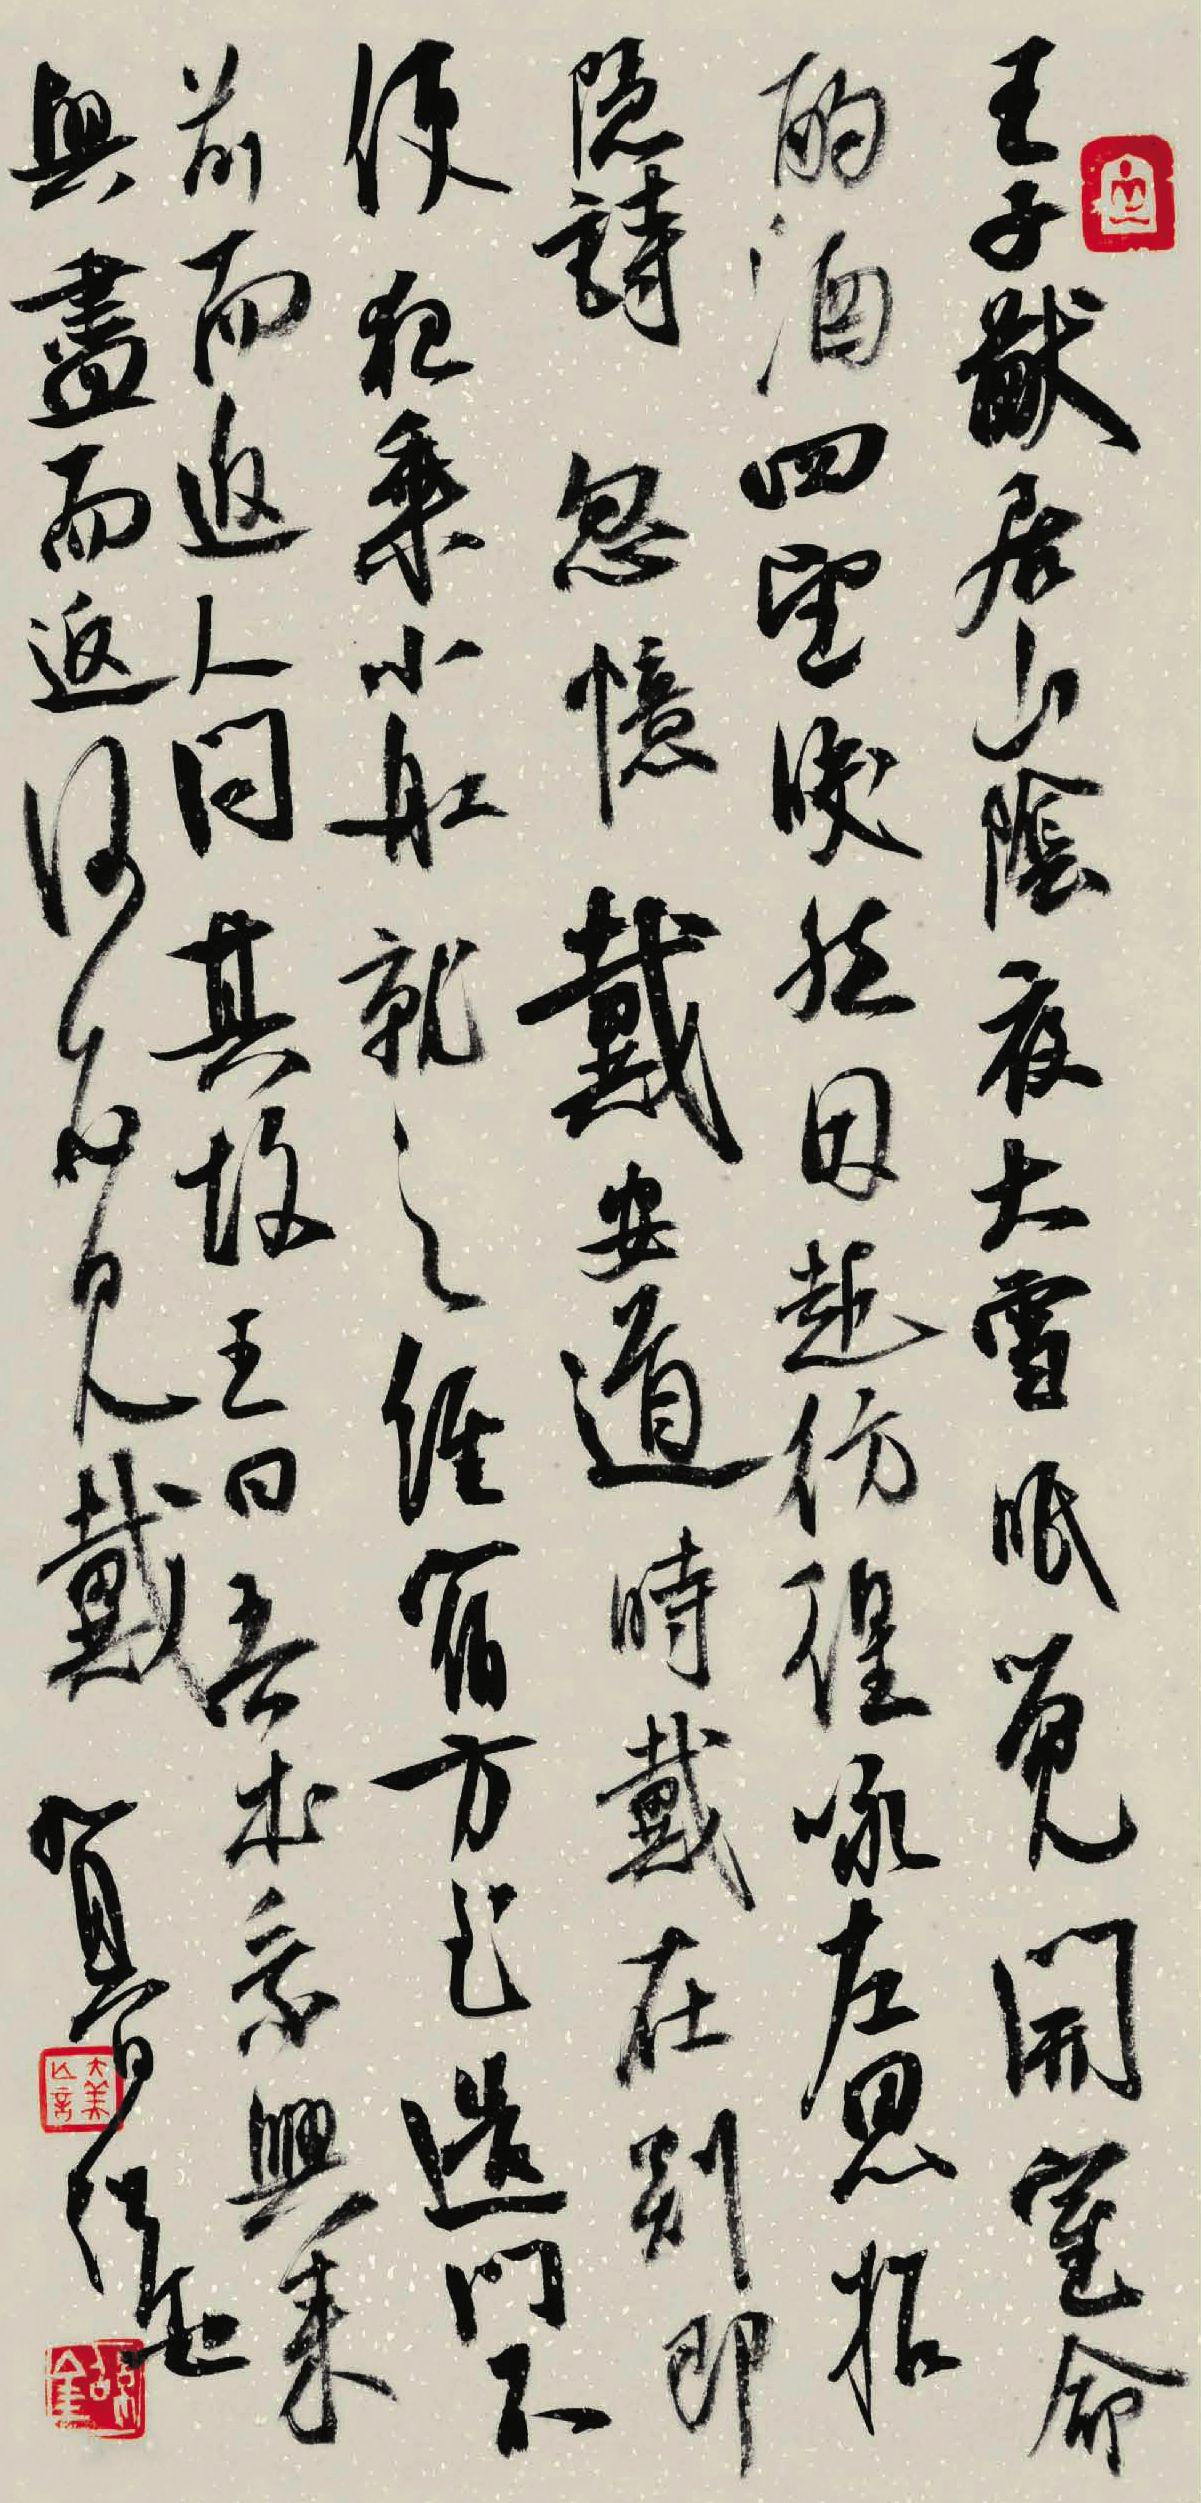 王子猷居山陰夜大雪眠覺開室命
酌酒四望皎然因起彷徨咏左思招
隐詩忽憶戴安道時戴在剡即
便夜乘小船就之經宿方至造門不
前而返人問其故王曰吾本乘興來
興盡而返何必見戴